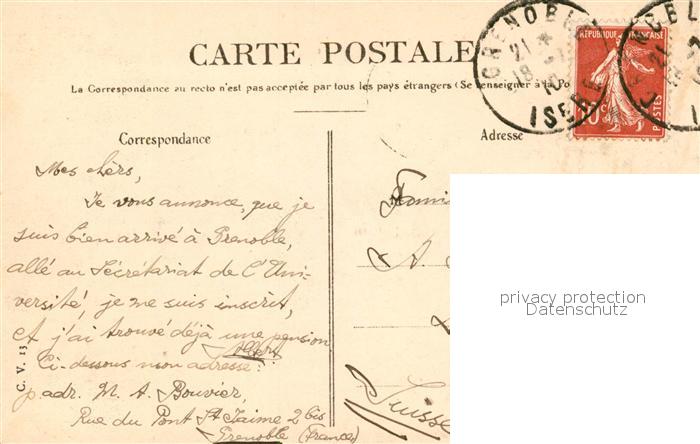 CARTE POSTALE
La Correspondance au recto n'est pas acceptée par tous les pays étrangers (Se renseigner à la Po
GRENOBLE
21
18
10
ISERE
RÉPUBLIQUE FRANÇAISE
10c
POSTES
Correspondance
Mes chèrs,
Je vous annonce, que je
suis bien arrivé à Grenoble,
allé au Sécrétariat de l'Uni-
versité, je me suis inscrit,
et j'ai trouvé déjà une pension
Albert
Ci-dessous mon adresse:
p. adr. M. A. Bouvier,
Rue du Pont St Jaime 2 bis
Grenoble (France)
C. V. 13
Adresse
Fami
A.
Suisse
privacy protection
Datenschutz